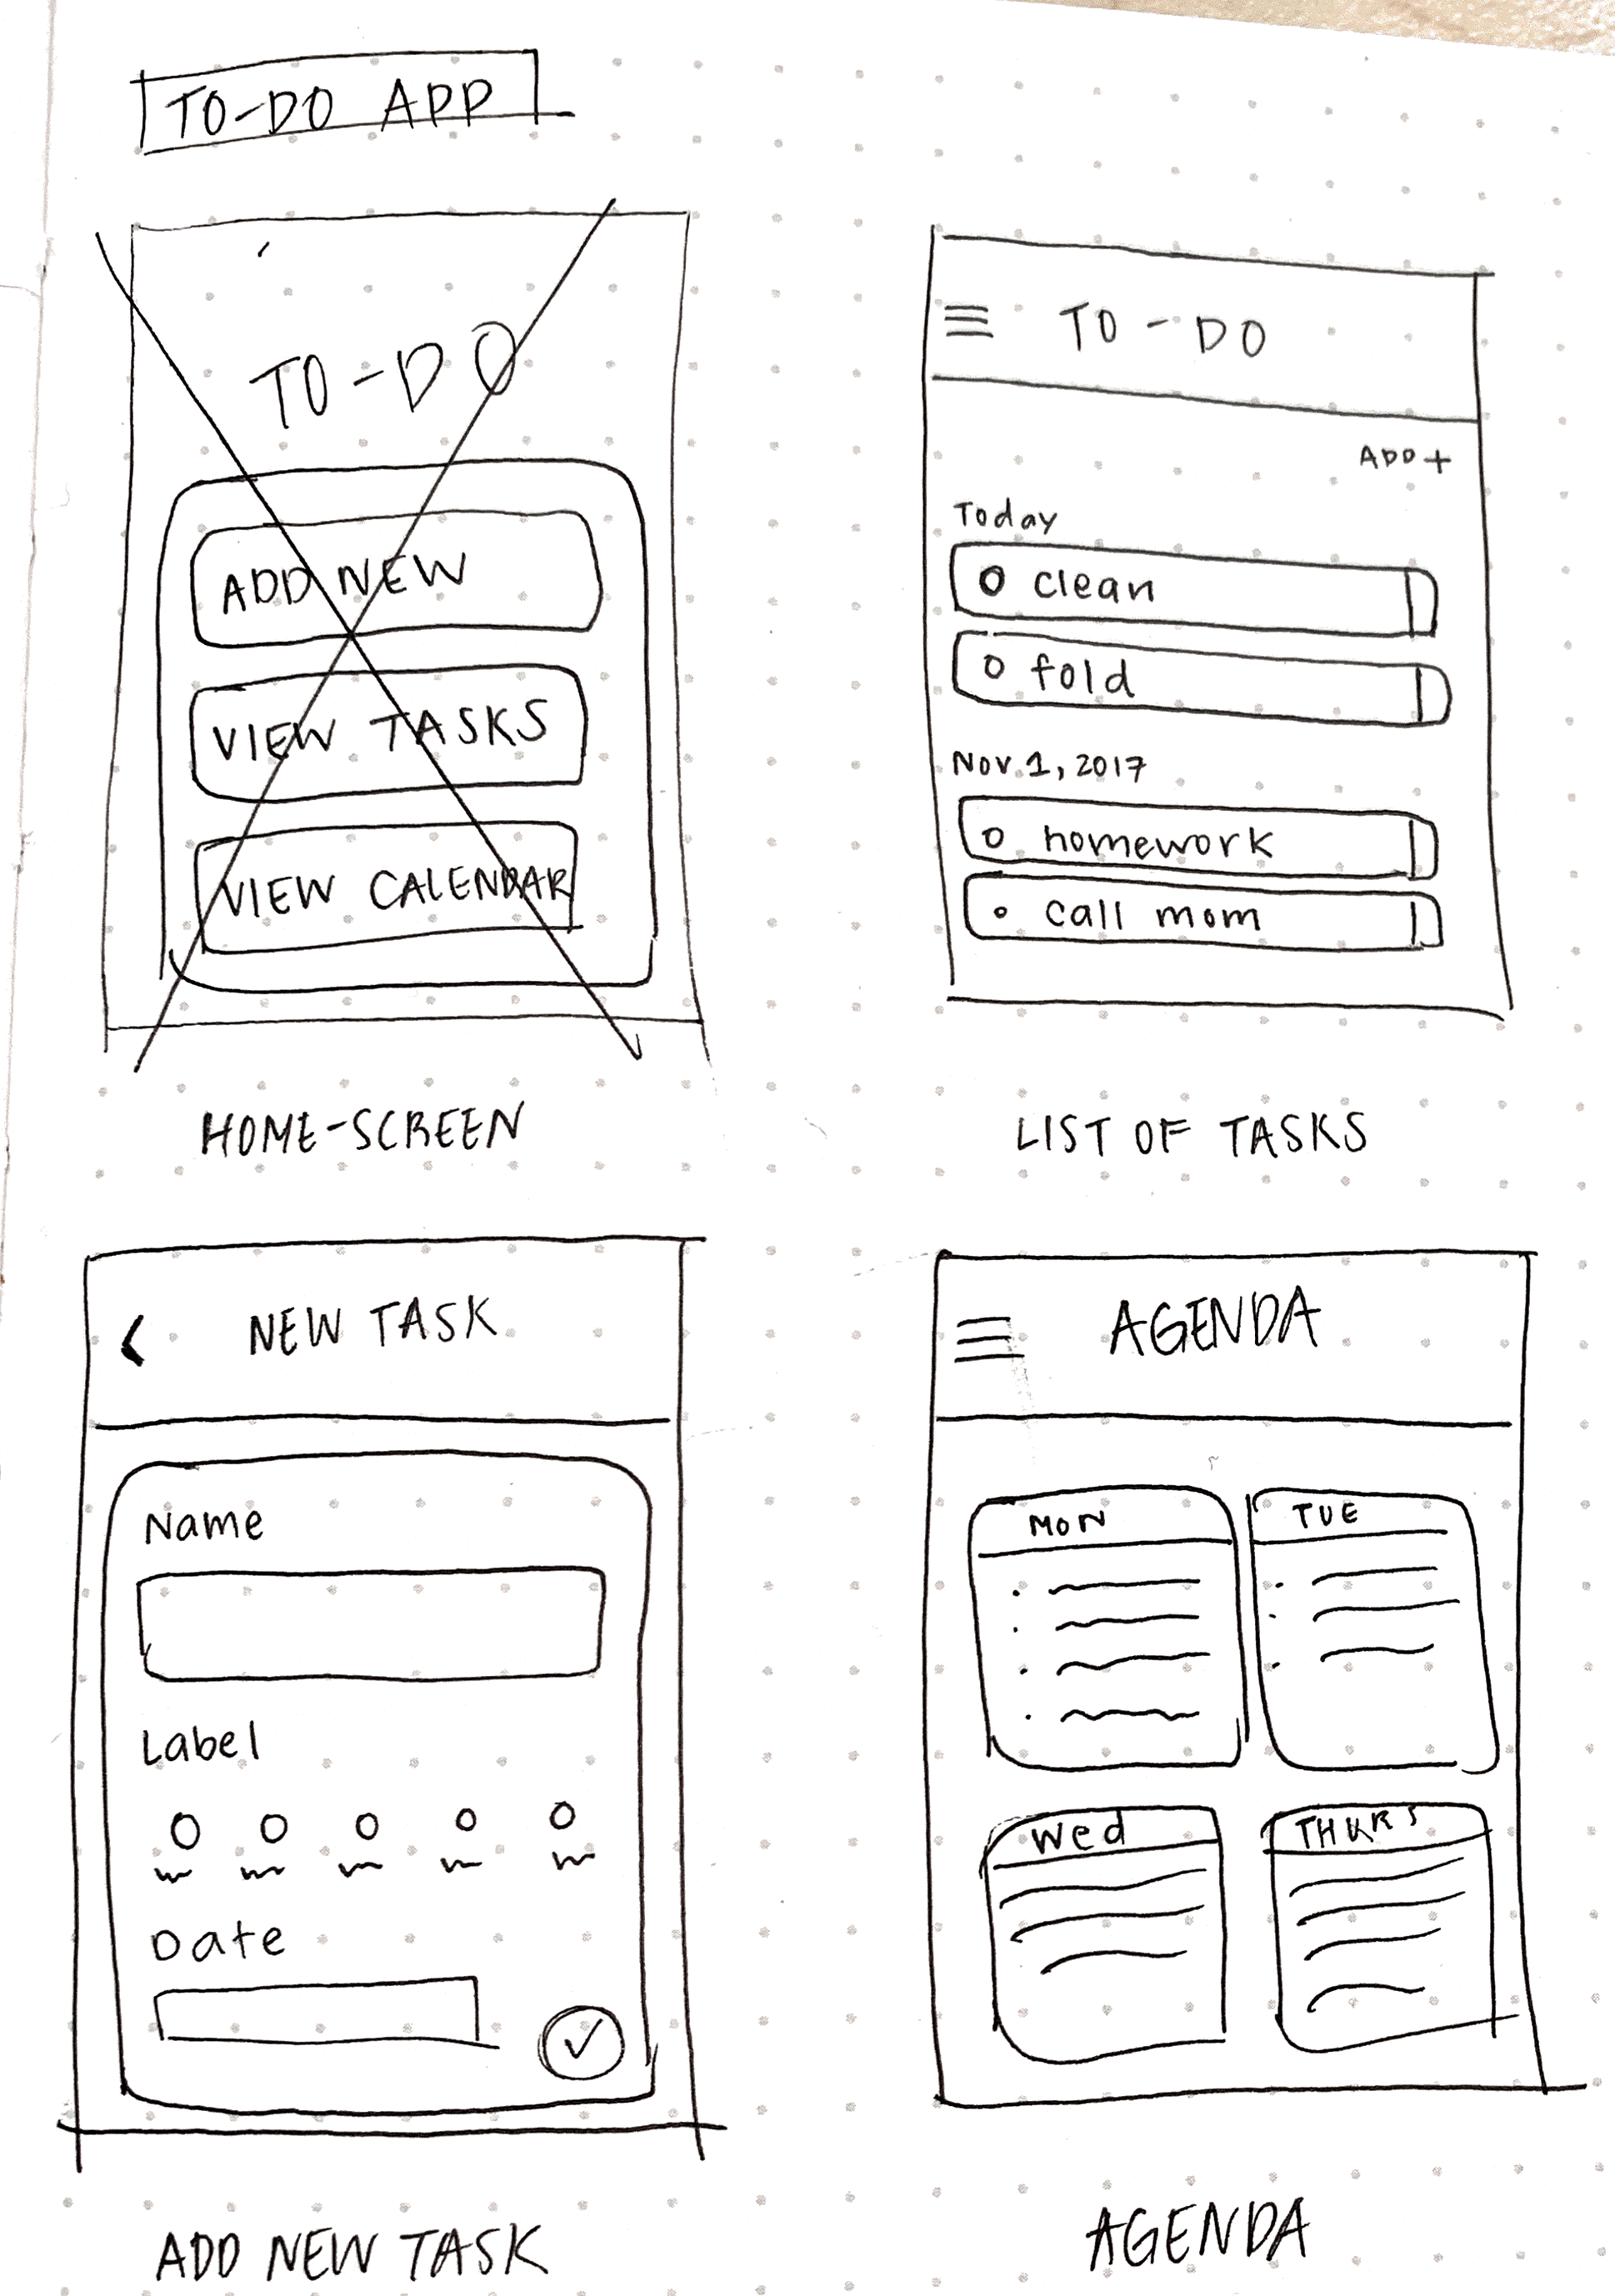 TO-DO APP
TO-DO
ADD NEW
VIEW TASKS
VIEW CALENDAR
HOME-SCREEN
TO-DO
ADD+
Today
clean
fold
Nov. 1, 2017
homework
call mom
LIST OF TASKS
NEW TASK
Name
Label
Date
ADD NEW TASK
AGENDA
MON
TUE
Wed
THURS
AGENDA